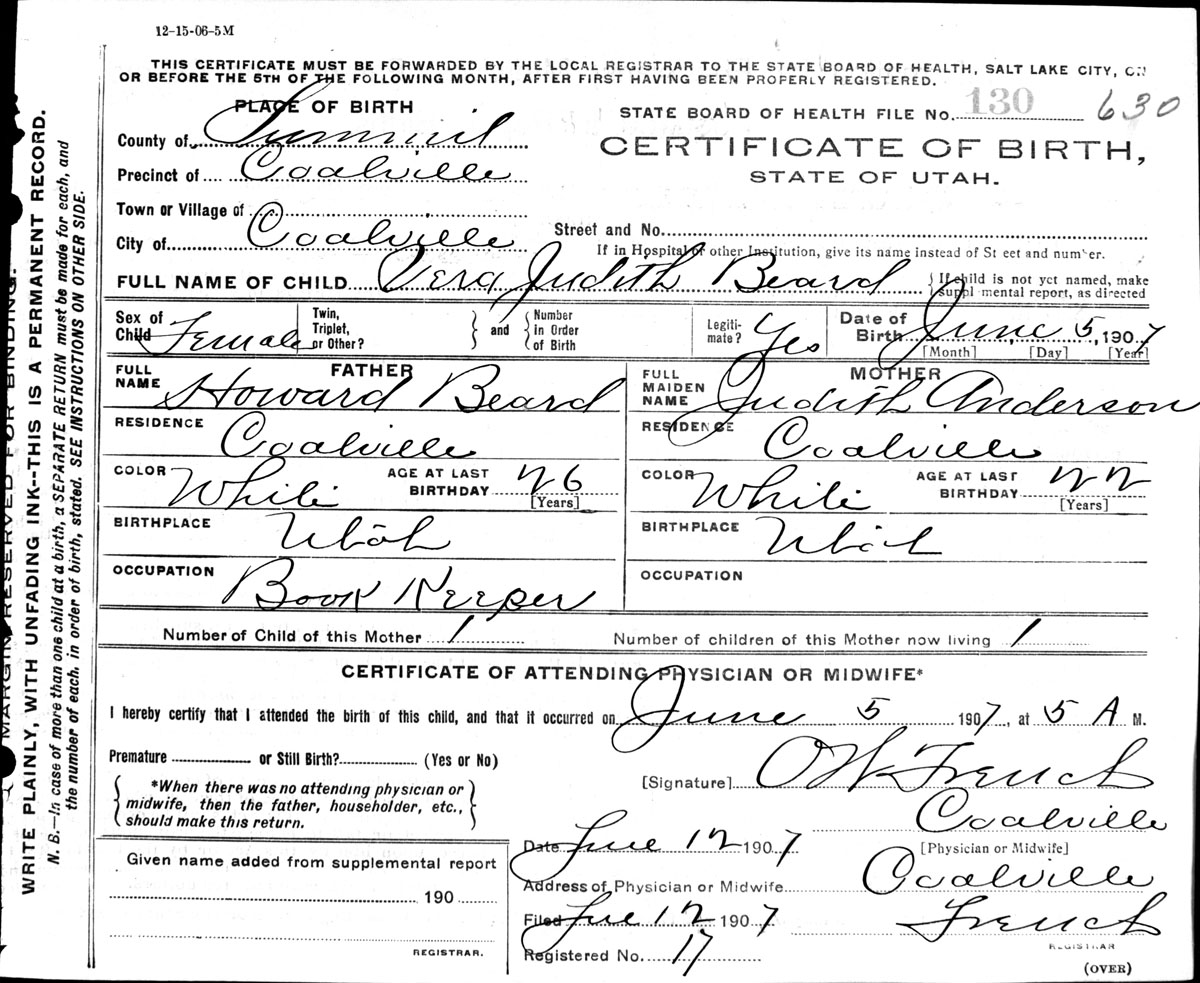 12-15-06-5M
THIS CERTIFICATE MUST BE FORWARDED BY THE LOCAL REGISTRAR TO THE STATE BOARD OF HEALTH, SALT LAKE CITY, ON
OR BEFORE THE 5TH OF THE FOLLOWING MONTH, AFTER FIRST HAVING BEEN PROPERLY REGISTERED.
PLACE OF BIRTH
STATE BOARD OF HEALTH FILE No. 130 630
County of Summit
CERTIFICATE OF BIRTH,
Precinct of Coalville
STATE OF UTAH.
Town or Village of
City of Coalville
Street and No.
If in Hospital or other Institution, give its name instead of St eet and number.
FULL NAME OF CHILD Vera Judith Beard
{If child is not yet named, make
suppl mental report, as directed
Sex of Child Female
Twin, Triplet, or Other? } and { Number in Order of Birth
Legiti-mate? Yes
Date of Birth June 5, 1907
[Month] [Day] [Year]
FATHER
FULL NAME Howard Beard
RESIDENCE Coalville
COLOR White AGE AT LAST BIRTHDAY 26 [Years]
BIRTHPLACE Utah
OCCUPATION Book Keeper
MOTHER
FULL MAIDEN NAME Judith Anderson
RESIDENCE Coalville
COLOR White AGE AT LAST BIRTHDAY 22 [Years]
BIRTHPLACE Utah
OCCUPATION
Number of Child of this Mother 1 Number of children of this Mother now living 1
CERTIFICATE OF ATTENDING PHYSICIAN OR MIDWIFE*
I hereby certify that I attended the birth of this child, and that it occurred on June 5 1907, at 5 A M.
Premature or Still Birth? (Yes or No)
{ *When there was no attending physician or
midwife, then the father, householder, etc.,
should make this return. }
[Signature] O W French
Coalville
[Physician or Midwife]
Date June 12 1907
Address of Physician or Midwife Coalville
Filed June 12 1907 French
REGISTRAR
Registered No. 17
(OVER)
Given name added from supplemental report
190
REGISTRAR.
MARGIN RESERVED FOR BINDING.
WRITE PLAINLY, WITH UNFADING INK--THIS IS A PERMANENT RECORD.
N. B.—In case of more than one child at a birth, a SEPARATE RETURN must be made for each, and
the number of each, in order of birth, stated. SEE INSTRUCTIONS ON OTHER SIDE.